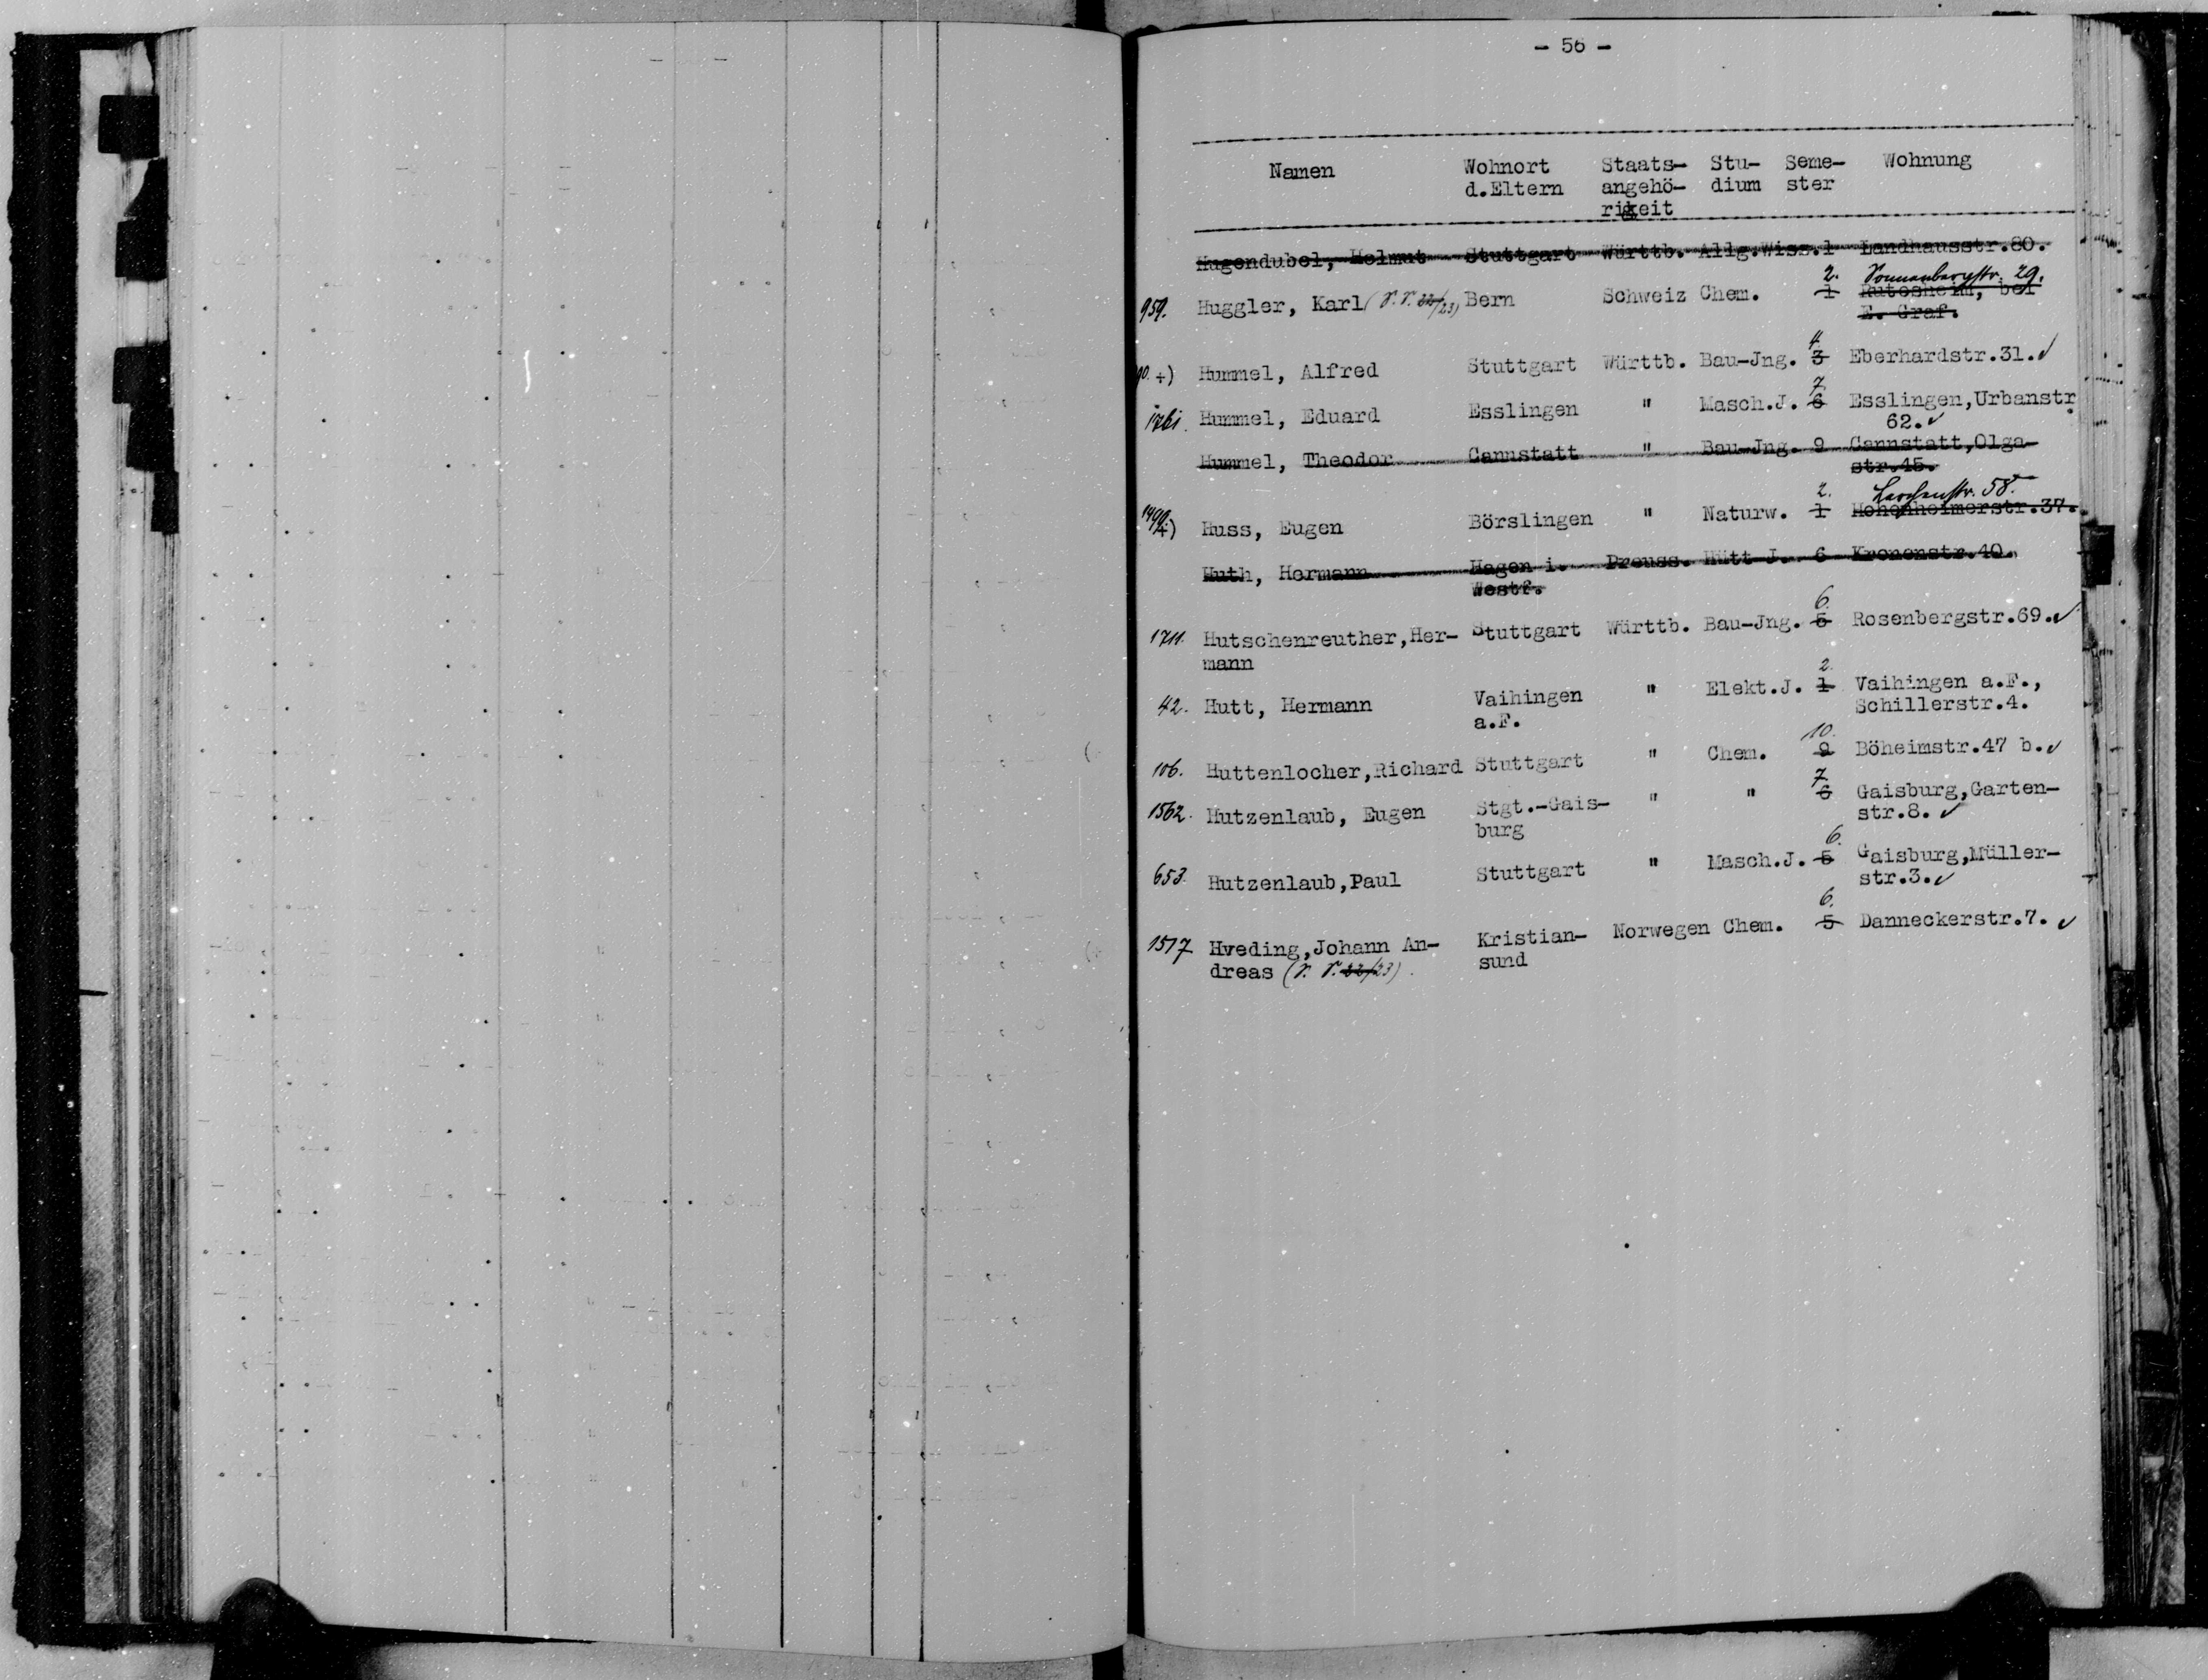 - 56 -
Namen Wohnort Staats- Stu- Seme- Wohnung
d.Eltern angehö- dium ster
rigkeit
Hugendubel, Helmut Stuttgart Württb. Allg.Wiss.1 Landhausstr.80.
2. Sonnenbergstr. 29.
959. Huggler, Karl (S.S. 22/23) Bern Schweiz Chem. 1 Rutesheim, bei
E. Graf.
4.
+) Hummel, Alfred Stuttgart Württb. Bau-Jng. 3 Eberhardstr.31.✓
7.
1761. Hummel, Eduard Esslingen " Masch.J. 6 Esslingen,Urbanstr.
62.✓
Hummel, Theodor Cannstatt " Bau-Jng. 9 Cannstatt,Olga-
str.45.
2. Lerchenstr. 58.
1499. +) Huss, Eugen Börslingen " Naturw. 1 Hohenheimerstr.37.
Huth, Hermann Hagen i. Preuss. Hütt J. 6 Kronenstr.40.
Westf.
6.
1711. Hutschenreuther,Her- Stuttgart Württb. Bau-Jng. 5 Rosenbergstr.69.✓
mann
2.
42. Hutt, Hermann Vaihingen " Elekt.J. 1 Vaihingen a.F.,
a.F. Schillerstr.4.
10.
106. Huttenlocher,Richard Stuttgart " Chem. 9 Böheimstr.47 b.✓
7.
1562. Hutzenlaub, Eugen Stgt.-Gais- " " 6 Gaisburg,Garten-
burg str.8. ✓
6.
653. Hutzenlaub,Paul Stuttgart " Masch.J. 5 Gaisburg,Müller-
str.3.✓
6.
1517 Hveding,Johann An- Kristian- Norwegen Chem. 5 Danneckerstr.7. ✓
dreas (S. S. 22/23). sund